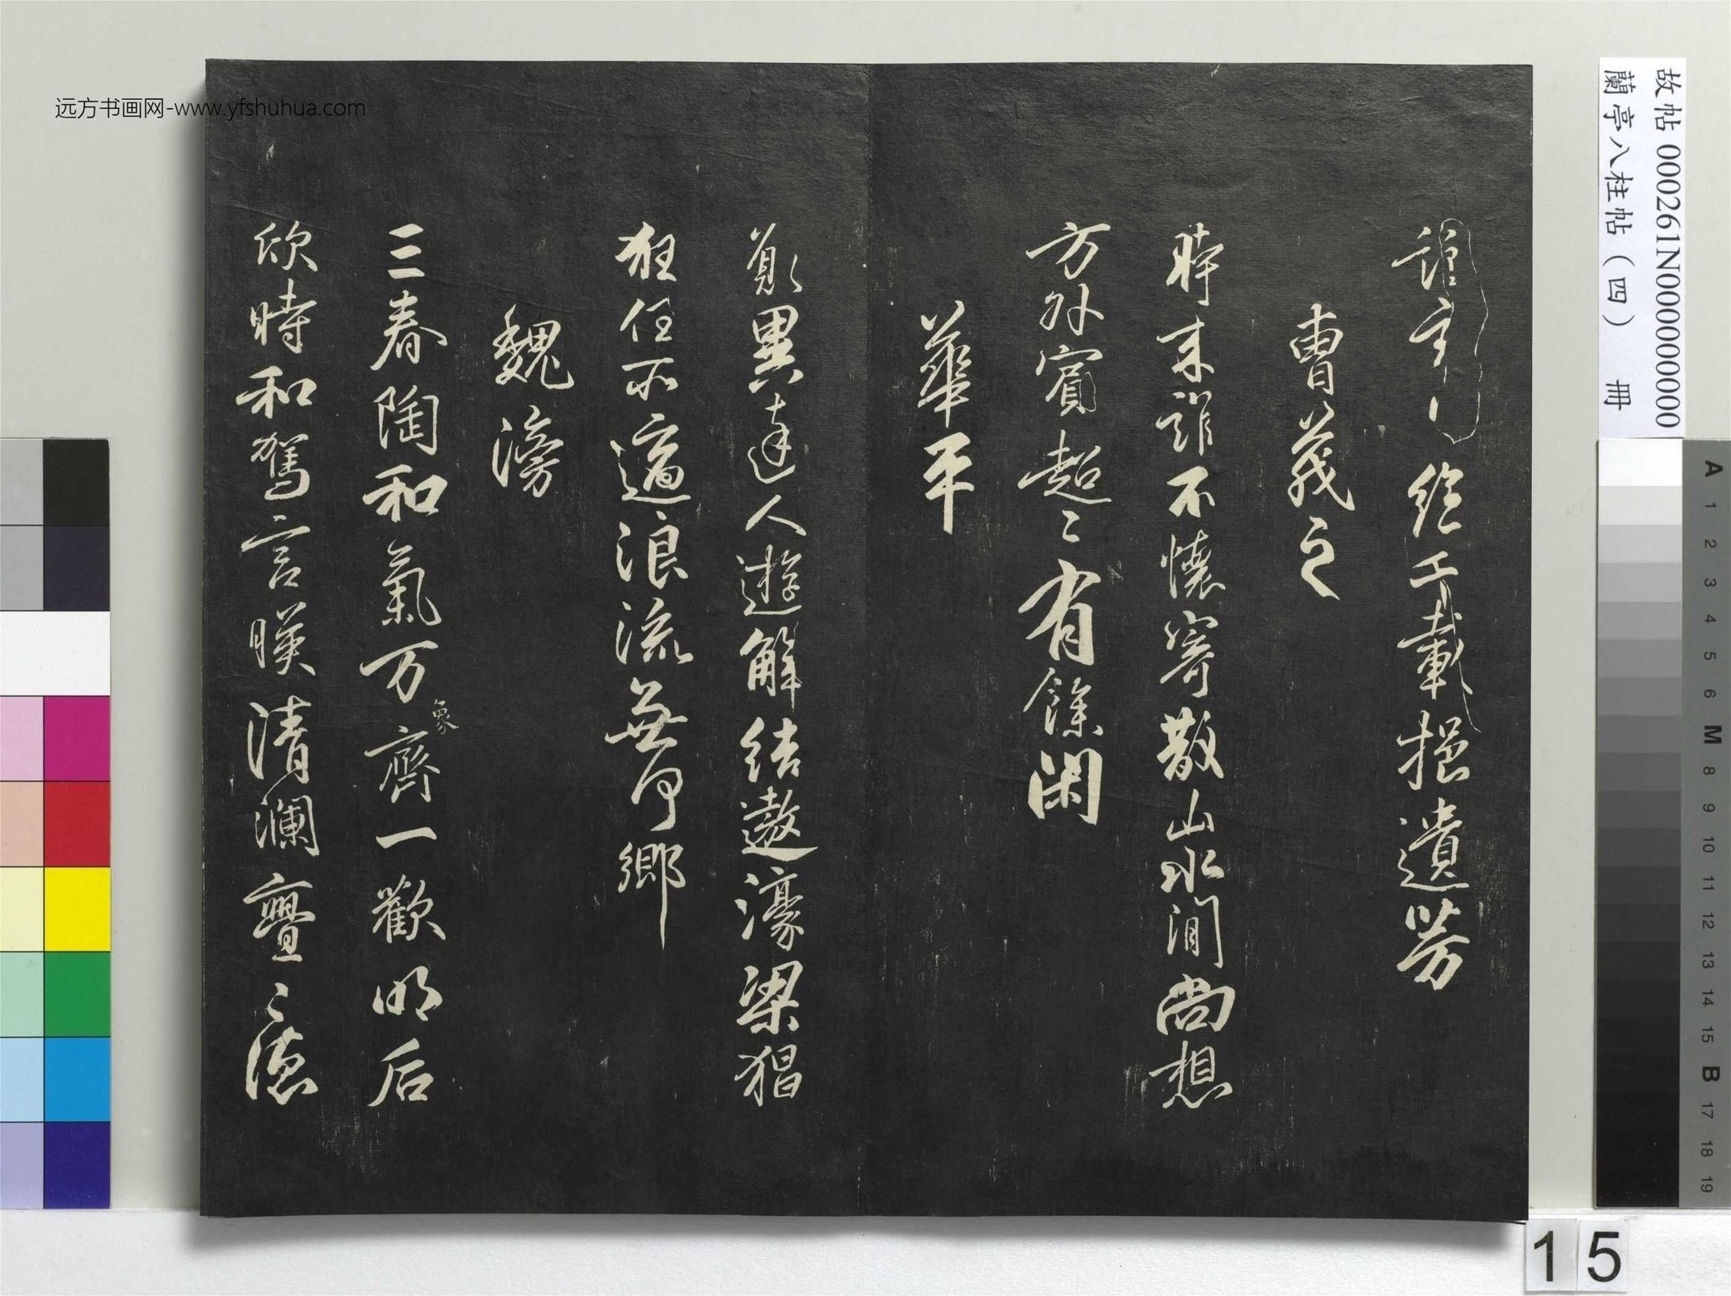 絶千載挹遺芳
曹茂之
時来誰不懷寄散山水間尚想
方外賓超〻有餘閑
華平
願與達人遊解結遨濠梁猖
狂任所適浪流無何鄉
魏滂
三春陶和氣万象齊一歡明后
欣時和駕言暎清瀾亹〻德
远方书画网-www.yfshuhua.com
故帖 000261N000000000
蘭亭八柱帖（四） 冊
A 1 2 3 4 5 6 M 8 9 10 11 12 13 14 15 B 17 18 19
15